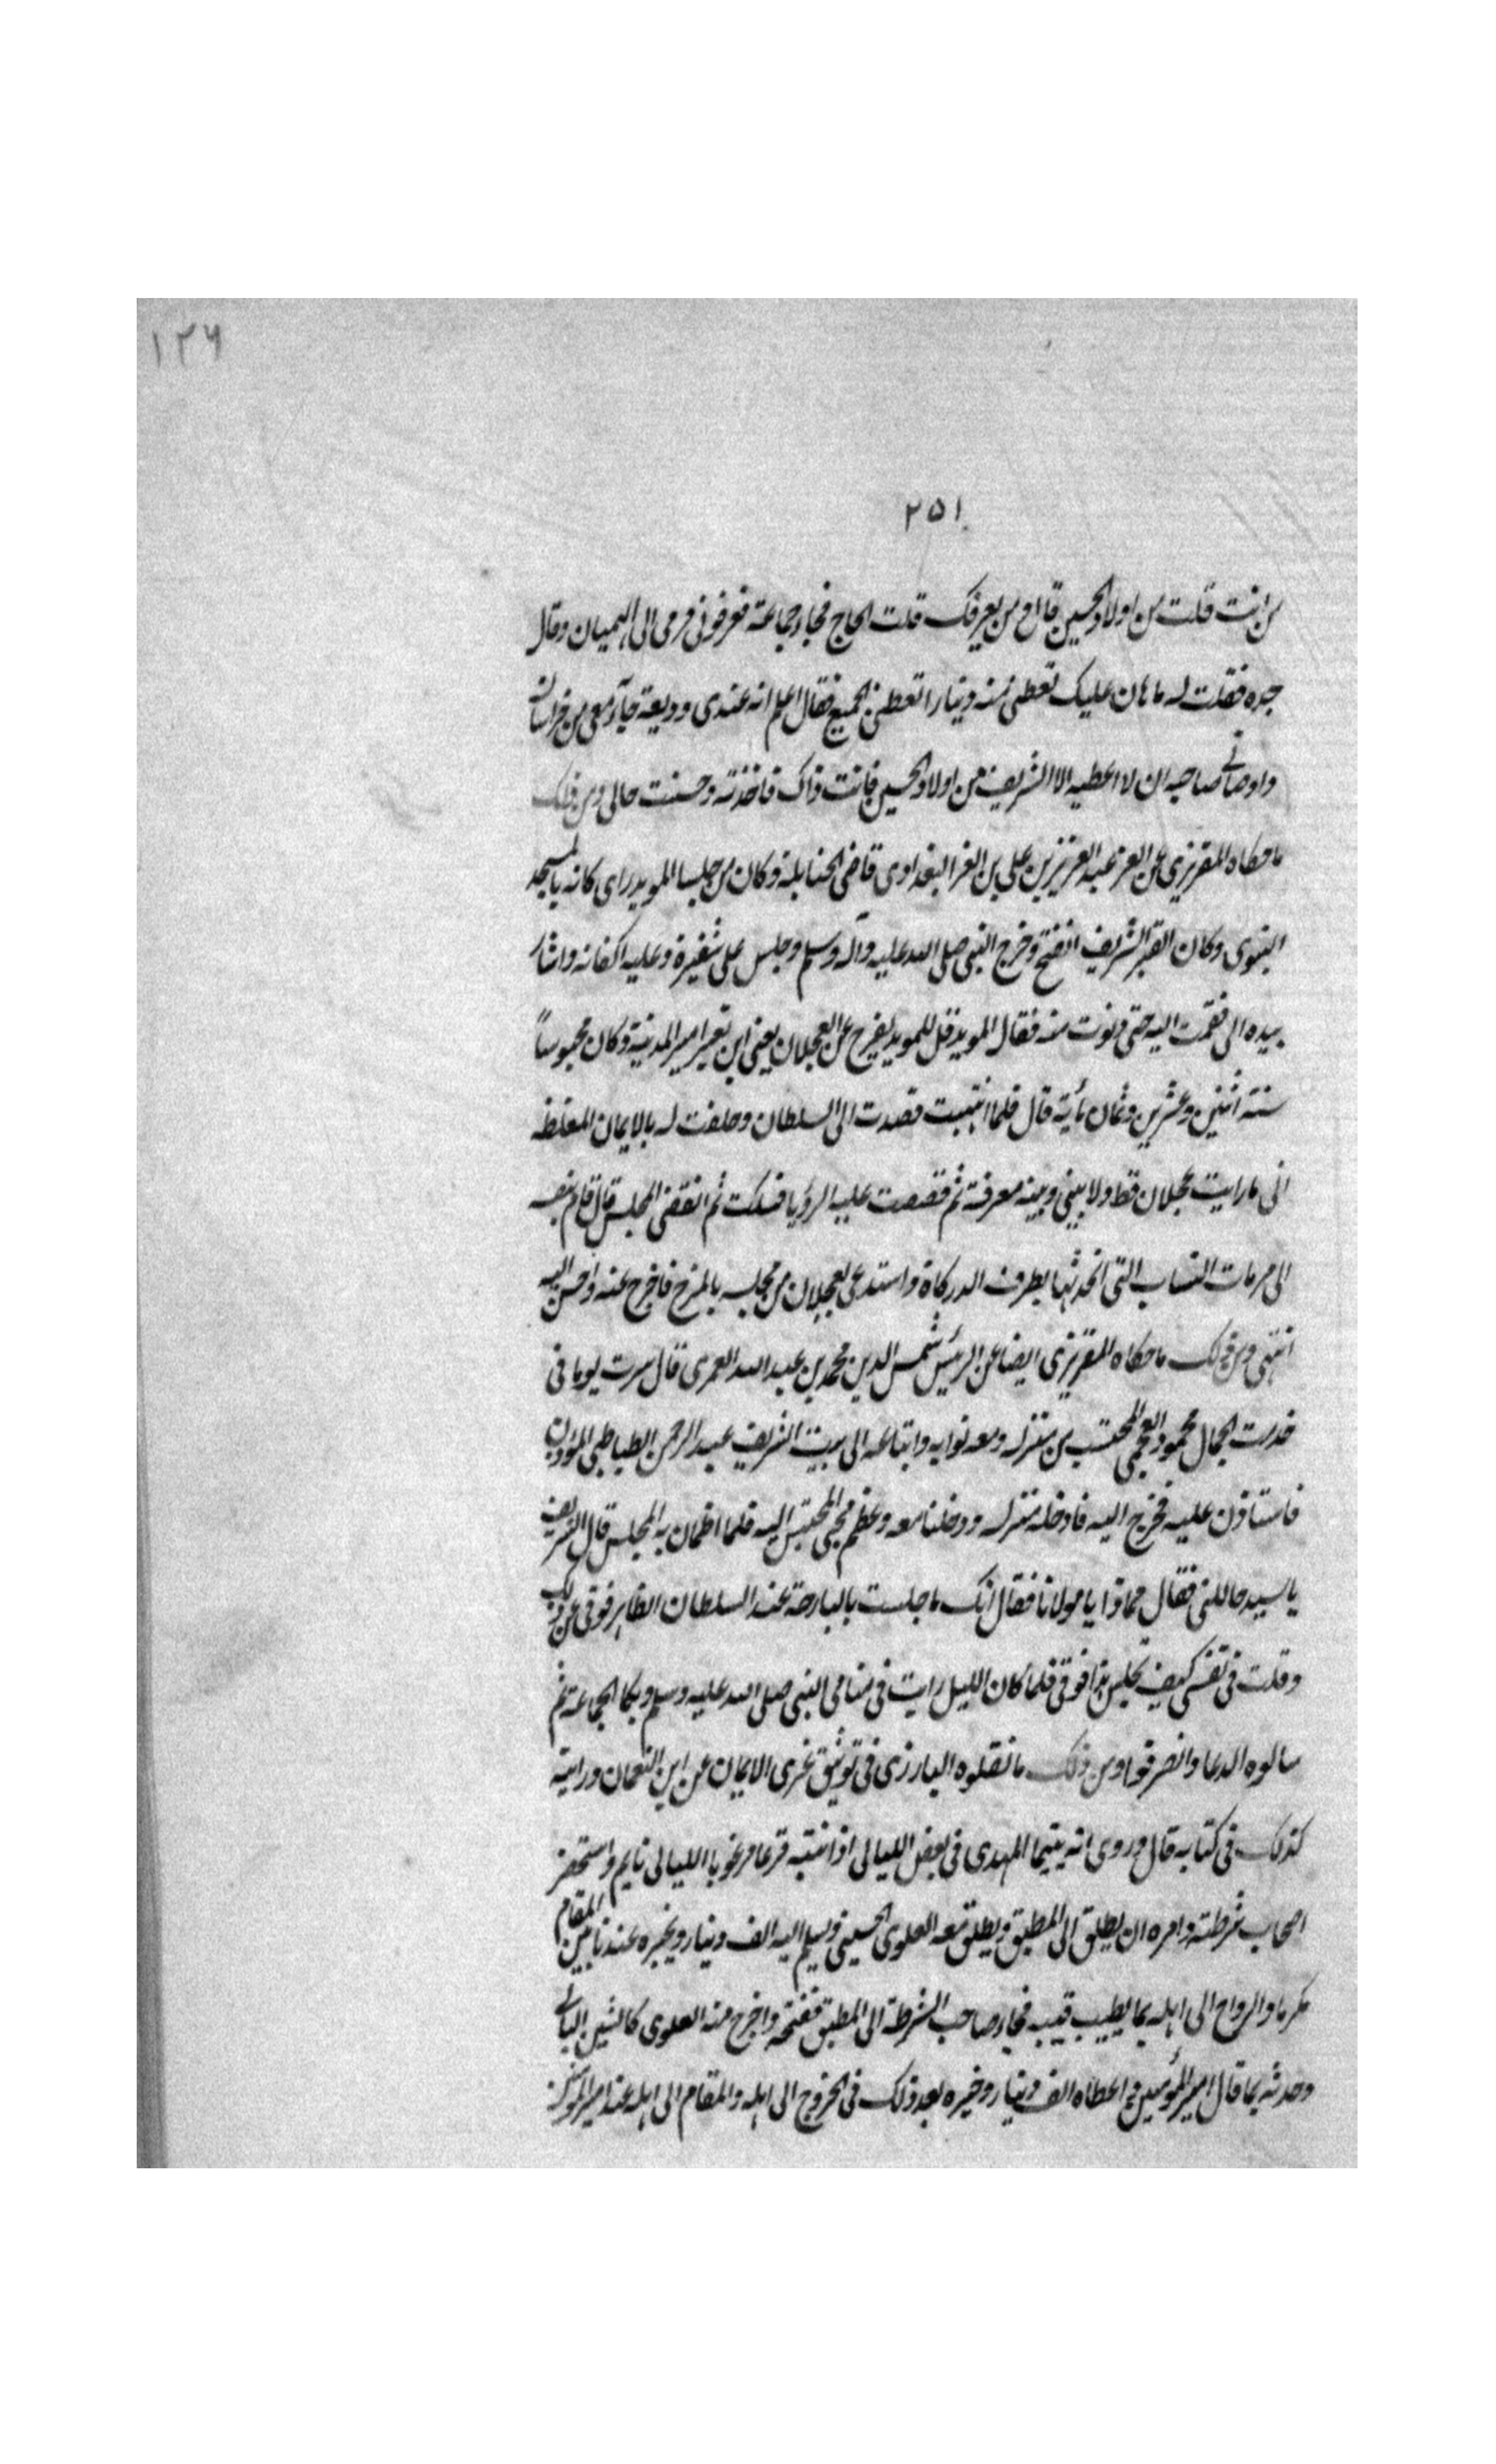 ١٢٦
٢٥١
من انت قلت من اولاد الحسين قال من يعرفك قلت الحاج فجاء جماعة فعرفوني فرمى الى الهميان وقال
جره فقلت له ما هان عليك تعطى منه دينارا تعطى الجميع فقال اعلم انه عندى وديعة جآء معى من خراسان
واوصانى صاحبه ان لا اعطيه الا الشريف من اولاد الحسين فانت ذاك فاخذته وحسنت حالى ومن ذلك
ما حكاه المقريزى عن العز عبد العزيز بن على بن العز البغدادى قاضى الحنابلة وكان من جلسا المويد راى كانه بالمسجد
النبوى وكان القبر الشريف انفتح وخرج النبى صلى الله عليه وآله وسلم وجلس على شفيرة وعليه اكفانه واشار
بيده الى فقمت اليه حتى دنوت منه فقال المويد قل للمويد يفرج عن العجلان يعنى ابن نعير امير المدينة وكان محبوساً
سنة اثنين وعشرين وثمان مأية قال فلما انتبهت قصدت الى السلطان وحلفت له بالايمان المغلظه
انى ما رايت عجلان قط ولا بينى وبينه معرفة ثم قصصت عليه الرؤيا فسكت ثم انقضى المجلس قال قام بنفسه
الى مرمات النشاب التى اتحدثها بطرف الدركاة واستدعى بعجلان من محبسه بالبرج فافرج عنه واحسن اليه
انتهى ومن ذلك ما حكاه المقريزى ايضا عن الرئيس شمس الدين محمد بن عبد الله العمرى قال سرت يوما فى
خدمت الجمال محمود العجمى المحتسب من منزله ومعه نوابه واتباعه الى بيت الشريف عبد الرحمن الطباطبى المؤذن
فاستاذن عليه فخرج اليه فادخله منزله ودخلنا معه وعظم مجى المحتسب اليه فلما اطمان به المجلس قال الشريف
يا سيد حاللنى فقال مماذا يا مولانا فقال انك ما جلست بالبارحة عند السلطان الظاهر فوقى عز ذلك
وقلت فى نفسى كيف تجلس هذا فوقى فلما كان الليل رايت فى منامى النبى صلى الله عليه وسلم وبكا الجماعة ثم
سالوه الدعا وانصرفوا ومن ذلك ما نقلوه البارزى فى توثيق عرى الايمان عن ابن النعمان ورايته
كذلك فى كتابه قال وروى انه بينما المهدى فى بعض الليالى اذ انتبه فزعا مرعوبا الليالى نايم واستحضر
اصحاب شرطته وامره ان يطلق الى المطبق ويطلق معه العلوى الحسينى ويسلم اليه الف دينار ويخيره عندنا بين المقام
مكرما والرواح الى اهله بما يطيب قيبه فجاء صاحب الشرطة الى المطبق ففتحه واخرج منه العلوى كالشن البالى
وحدثه بما قال امير المؤمنين واعطاه الف دينار وخيره بعد ذلك فى الخروج الى اهله والمقام الى اهله عند امير المؤمنين